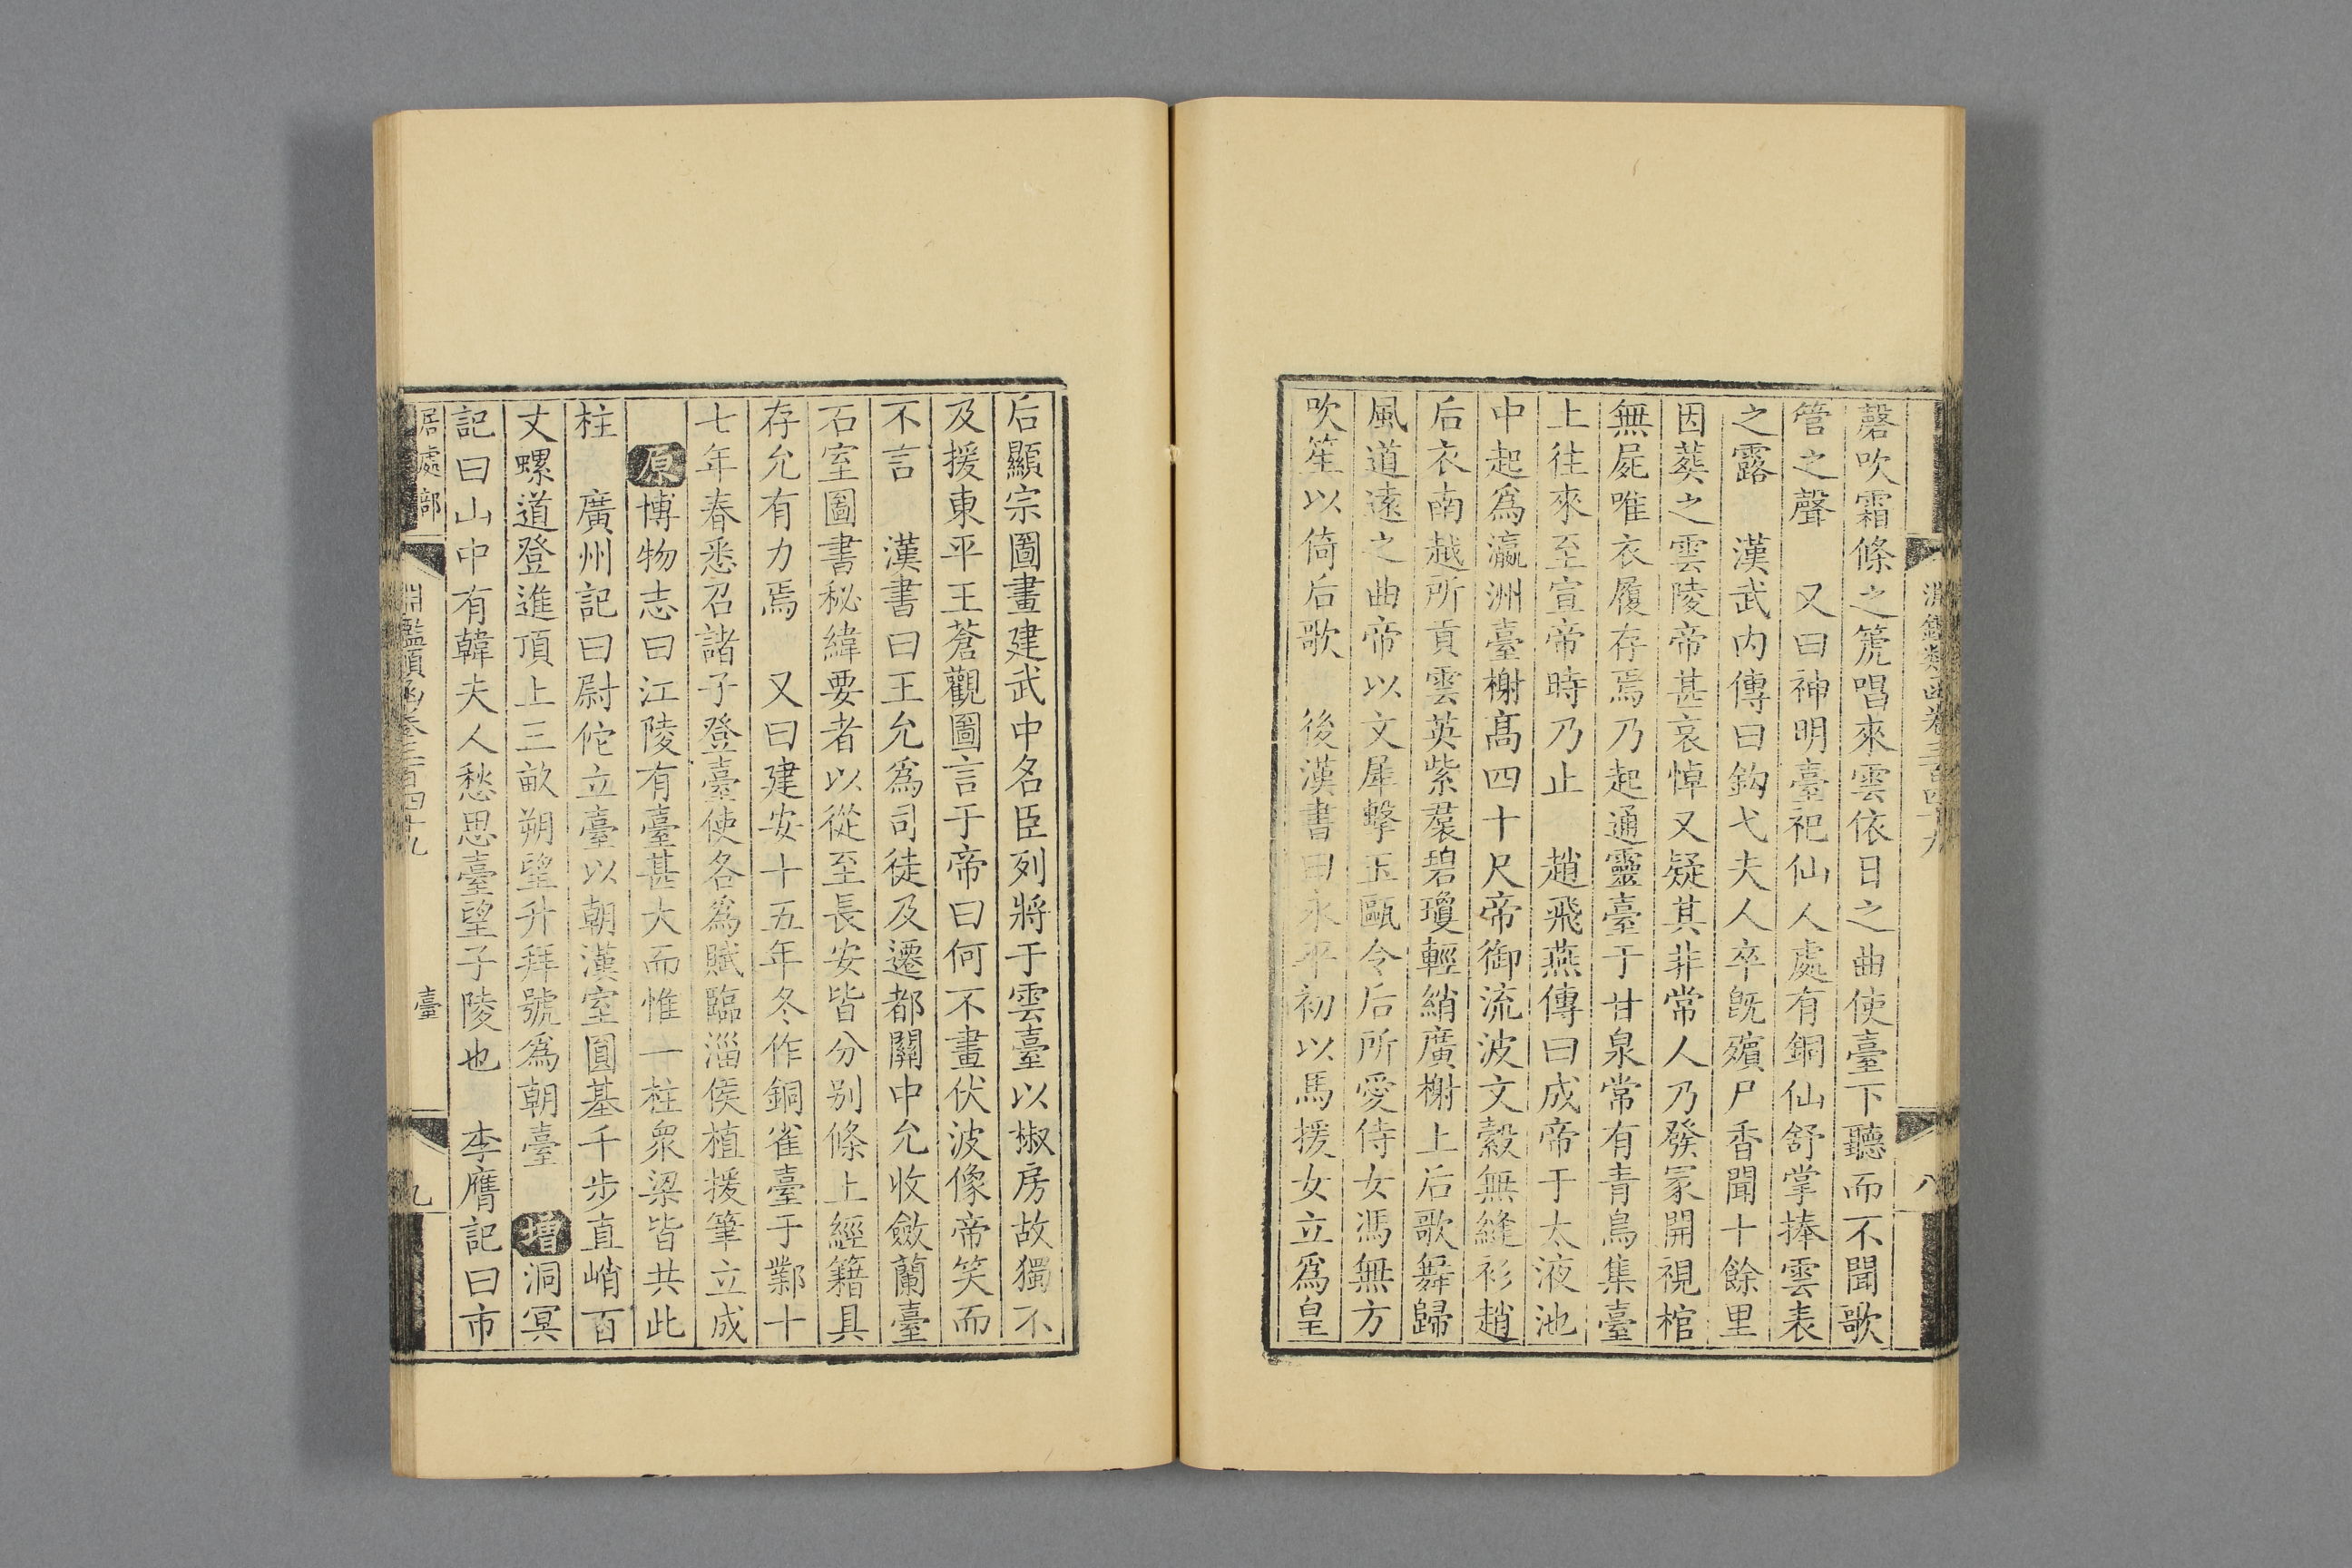 淵鑑類函卷三百四十九
八
磬吹霜條之箎唱來雲依日之曲使臺下聽而不聞歌
管之聲　又曰神明臺祀仙人處有銅仙舒掌捧雲表
之露　漢武內傳曰鈎弋夫人卒旣殯尸香聞十餘里
因葬之雲陵帝甚哀悼又疑其非常人乃發冢開視棺
無屍唯衣履存焉乃起通靈臺于甘泉常有青鳥集臺
上往來至宣帝時乃止　趙飛燕傳曰成帝于太液池
中起爲瀛洲臺榭高四十尺帝御流波文縠無縫衫趙
后衣南越所貢雲英紫裠碧瓊輕綃廣榭上后歌舞歸
風送遠之曲帝以文犀擊玉甌令后所愛侍女馮無方
吹笙以倚后歌　後漢書曰永平初以馬援女立爲皇
后顯宗圖畫建武中名臣列將于雲臺以椒房故獨不
及援東平王蒼觀圖言于帝曰何不畫伏波像帝笑而
不言　漢書曰王允爲司徒及遷都關中允收斂蘭臺
石室圖書秘緯要者以從至長安皆分別條上經籍具
存允有力焉　又曰建安十五年冬作銅雀臺于鄴十
七年春悉召諸子登臺使各爲賦臨淄侯植援筆立成
原博物志曰江陵有臺甚大而惟一柱衆梁皆共此
柱　廣州記曰尉佗立臺以朝漢室圓基千步直峭百
丈螺道登進頂上三畝朔望升拜號爲朝臺　增洞冥
記曰山中有韓夫人愁思臺望子陵也　李膺記曰市
居處部
淵鑑類函卷三百四十九
臺
九